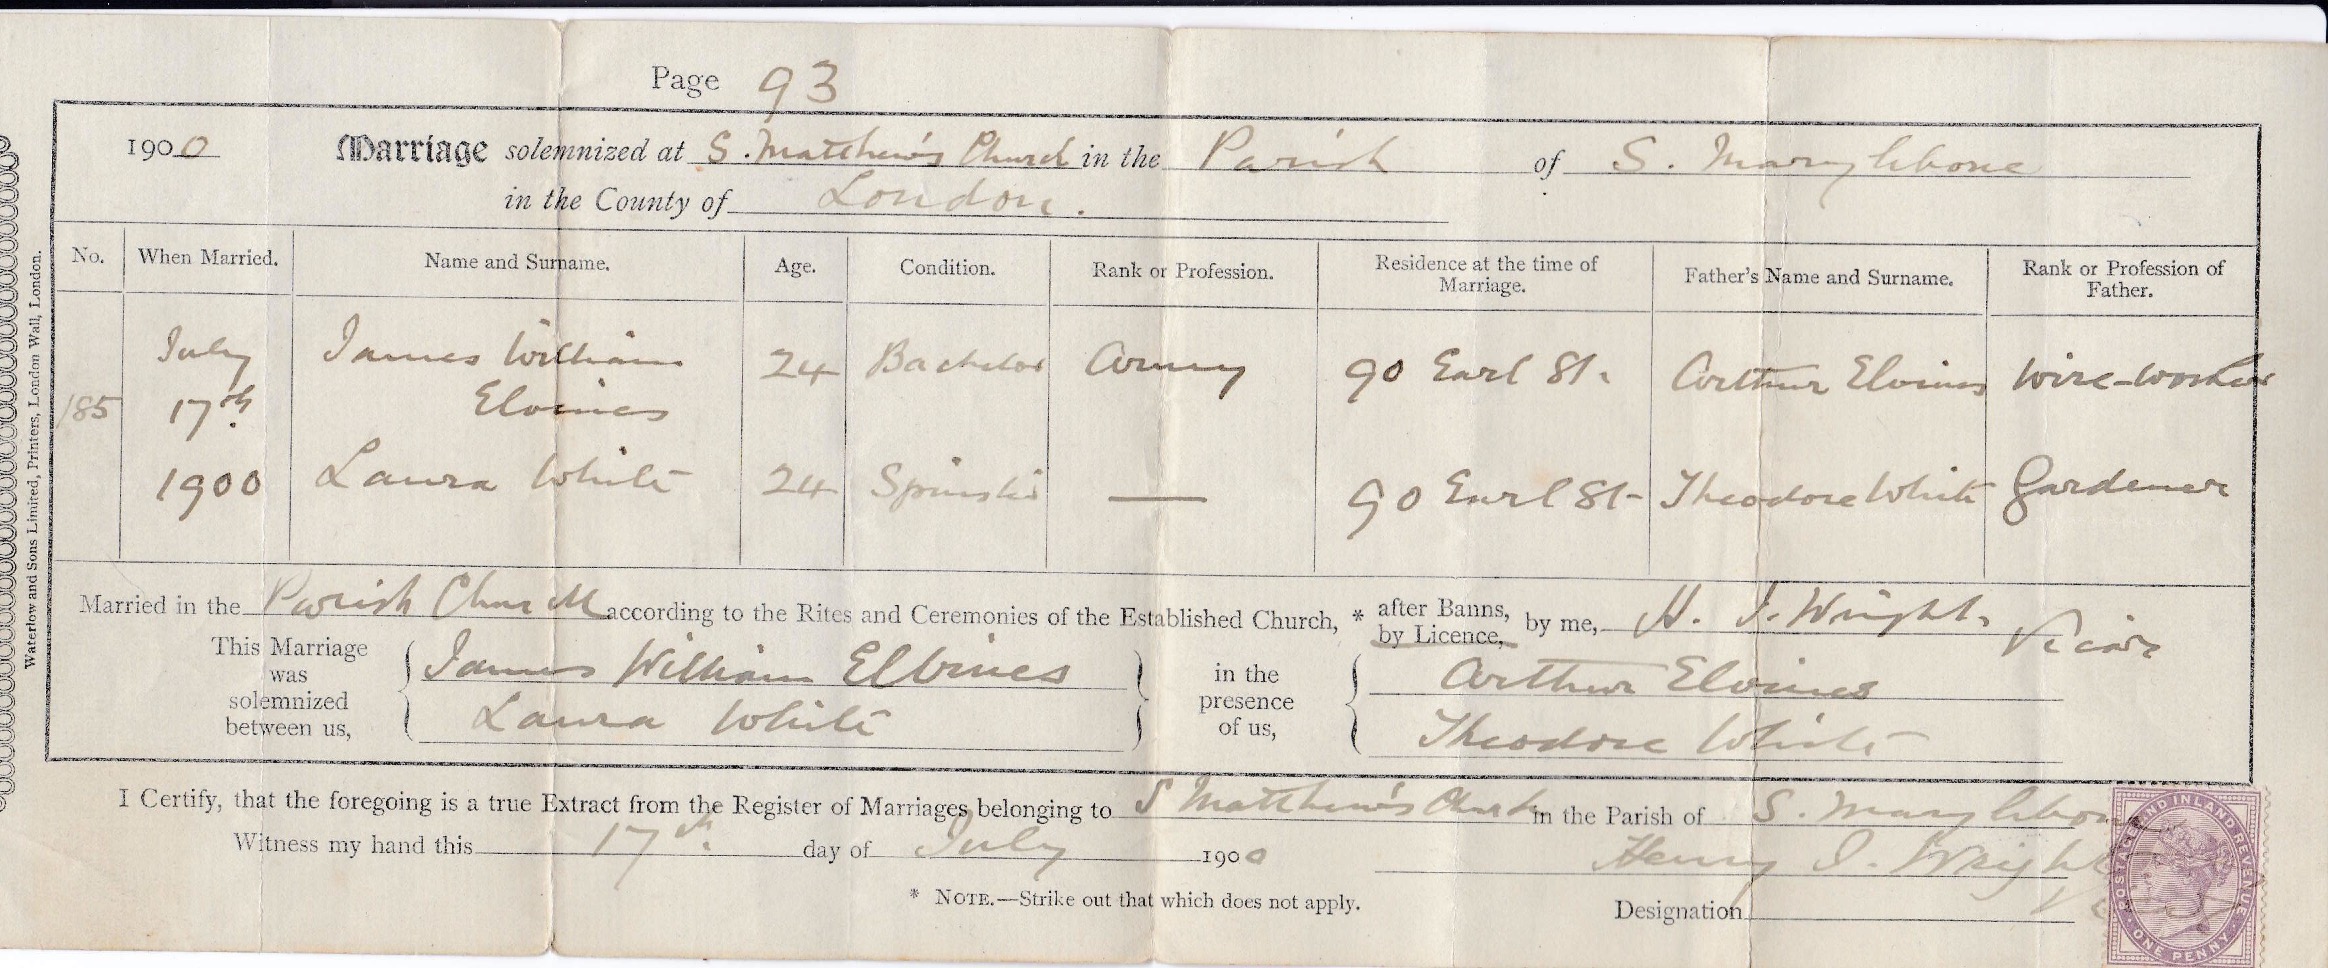 Page 93
1900 Marriage solemnized at S. Matthew's Church in the Parish of S. Marylebone
in the County of London.
No. When Married. Name and Surname. Age. Condition. Rank or Profession. Residence at the time of Marriage. Father's Name and Surname. Rank or Profession of Father.
July James William 24 Bachelor Army 90 Earl St. Arthur Elvines Wire-worker
185 17th Elvines
1900 Laura White 24 Spinster — 90 Earl St- Theodore White Gardener
Married in the Parish Church according to the Rites and Ceremonies of the Established Church, * after Banns, by Licence, by me, H. J. Wright. Vicar
This Marriage was solemnized between us, James William Elvines
Laura White
in the presence of us, Arthur Elvines
Theodore White
I Certify, that the foregoing is a true Extract from the Register of Marriages belonging to S Matthew's Church in the Parish of S. Marylebone
Witness my hand this 17th. day of July 1900 Henry J. Wright
* NOTE.—Strike out that which does not apply.
Designation
POSTAGE AND INLAND REVENUE
ONE PENNY
Waterlow and Sons Limited, Printers, London Wall, London.